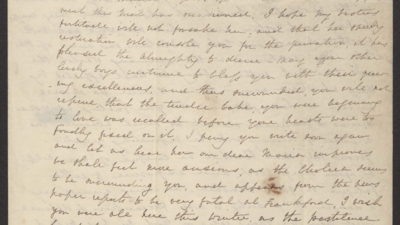 meet this trial has our interest, I hope my sisters
fortitude will not forsake her, and that her steady
resignation will console you for the privation it has
pleased the Almighty to decree - may your other
lovely boys, continue to bless you with these grow
ing excellencies, and thus surrounded you will not
repine, that the tender babe you were beginning
to love was recalled before your hearts were too
fondly fixed on it. I beg you write soon again
and let us hear how our dear Maria improves
we shall feel more anxious, as the Cholera seems
to be surrounding you, and appears from the news
paper reports to be very fatal at Frankford, I wish
you were all here this winter, as the pestilence